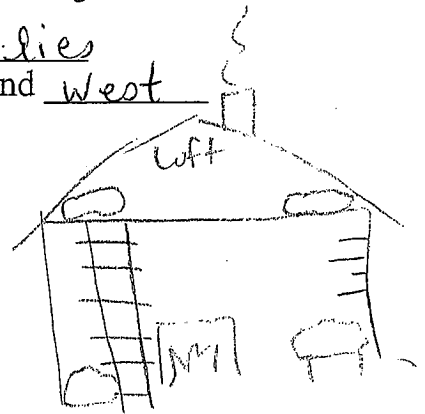 lies
nd West
Loft